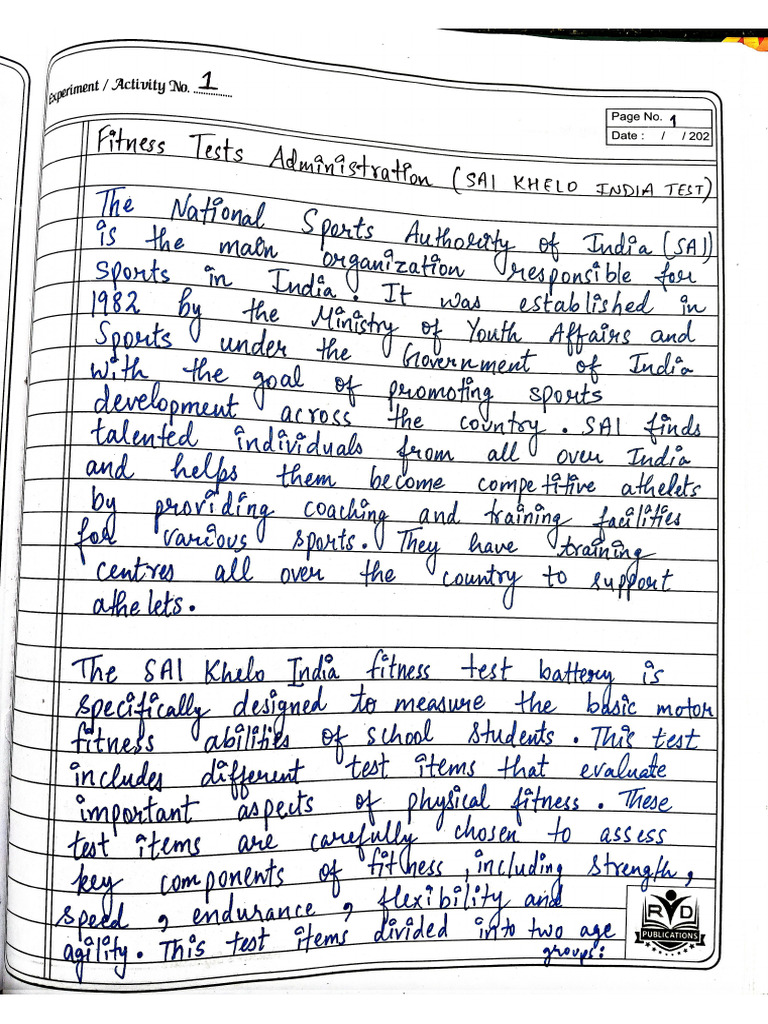 Experiment / Activity No. 1
Page No. 1
Date : / / 202
Fitness Tests Administration (SAI KHELO INDIA TEST)
The National Sports Authority of India (SAI)
is the main organization responsible for
sports in India. It was established in
1982 by the Ministry of Youth Affairs and
Sports under the Government of India
with the goal of promoting sports
development across the country. SAI finds
talented individuals from all over India
and helps them become competitive athelets
by providing coaching and training facilities
for various sports. They have training
centres all over the country to support
athelets.
The SAI Khelo India fitness test battery is
specifically designed to measure the basic motor
fitness abilities of school students. This test
includes different test items that evaluate
important aspects of physical fitness. These
test items are carefully chosen to assess
key components of fitness, including strength,
speed, endurance, flexibility and
agility. This test items divided into two age
groups:
RVD
PUBLICATIONS